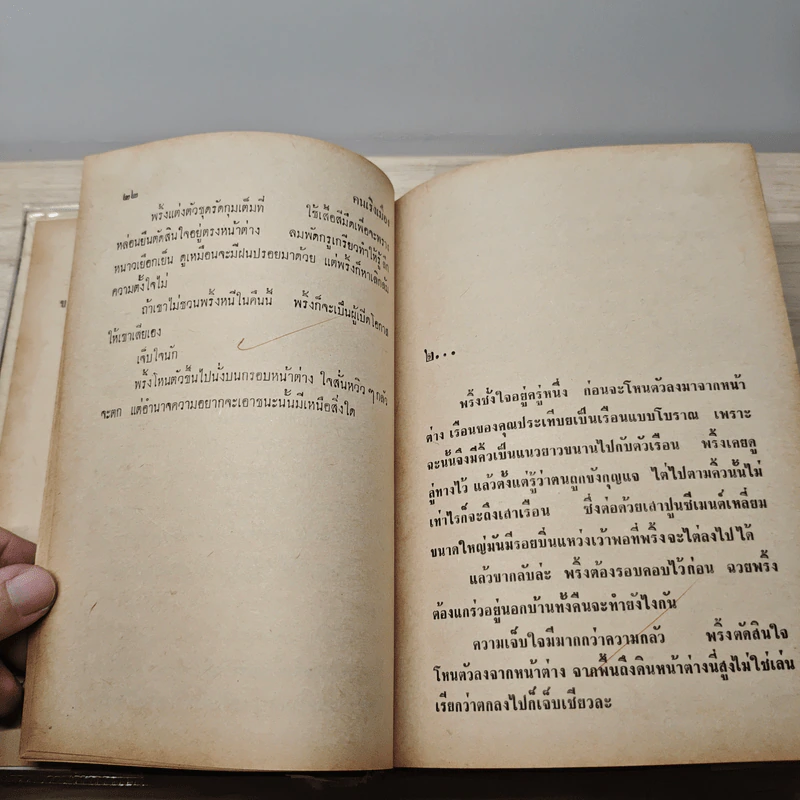 ๒๒
คนเริงเมือง
พริ้งแต่งตัวชุดรัดกุมเต็มที่ ใช้เสื้อสีมืดเพื่อจะพราง
หล่อนยืนตัดสินใจอยู่ตรงหน้าต่าง ลมพัดกรูเกรียวทำให้รู้สึก
หนาวเยือกเย็น ดูเหมือนจะมีฝนปรอยมาด้วย แต่พริ้งก็หาเลิกล้ม
ความตั้งใจไม่
ถ้าเขาไม่ชวนพริ้งหนีในคืนนี้ พริ้งก็จะเป็นผู้เปิดโอกาส
ให้เขาเสียเอง
เจ็บใจนัก
พริ้งโหนตัวขึ้นไปนั่งบนกรอบหน้าต่าง ใจสั่นหวิว ๆ กลัว
จะตก แต่อำนาจความอยากจะเอาชนะนั้นมีเหนือสิ่งใด
ข
๒...
พริ้งชั่งใจอยู่ครู่หนึ่ง ก่อนจะโหนตัวลงมาจากหน้า
ต่าง เรือนของคุณประเทียบเป็นเรือนแบบโบราณ เพราะ
ฉะนั้นจึงมีคิ้วเป็นแนวยาวขนานไปกับตัวเรือน พริ้งเคยดู
ลู่ทางไว้ แล้วตั้งแต่รู้ว่าตนถูกบังกุญแจ ไต่ไปตามคิ้วนั้นไม่
เท่าไรก็จะถึงเสาเรือน ซึ่งต่อด้วยเสาปูนซีเมนต์เหลี่ยม
ขนาดใหญ่มันมีรอยบิ่นแหว่งเว้าพอที่พริ้งจะไต่ลงไปได้
แล้วขากลับล่ะ พริ้งต้องรอบคอบไว้ก่อน ฉวยพริ้ง
ต้องแกร่วอยู่นอกบ้านทั้งคืนจะทำยังไงกัน
ความเจ็บใจมีมากกว่าความกลัว พริ้งตัดสินใจ
โหนตัวลงจากหน้าต่าง จากพื้นถึงดินหน้าต่างนี่สูงไม่ใช่เล่น
เรียกว่าตกลงไปก็เจ็บเชียวละ